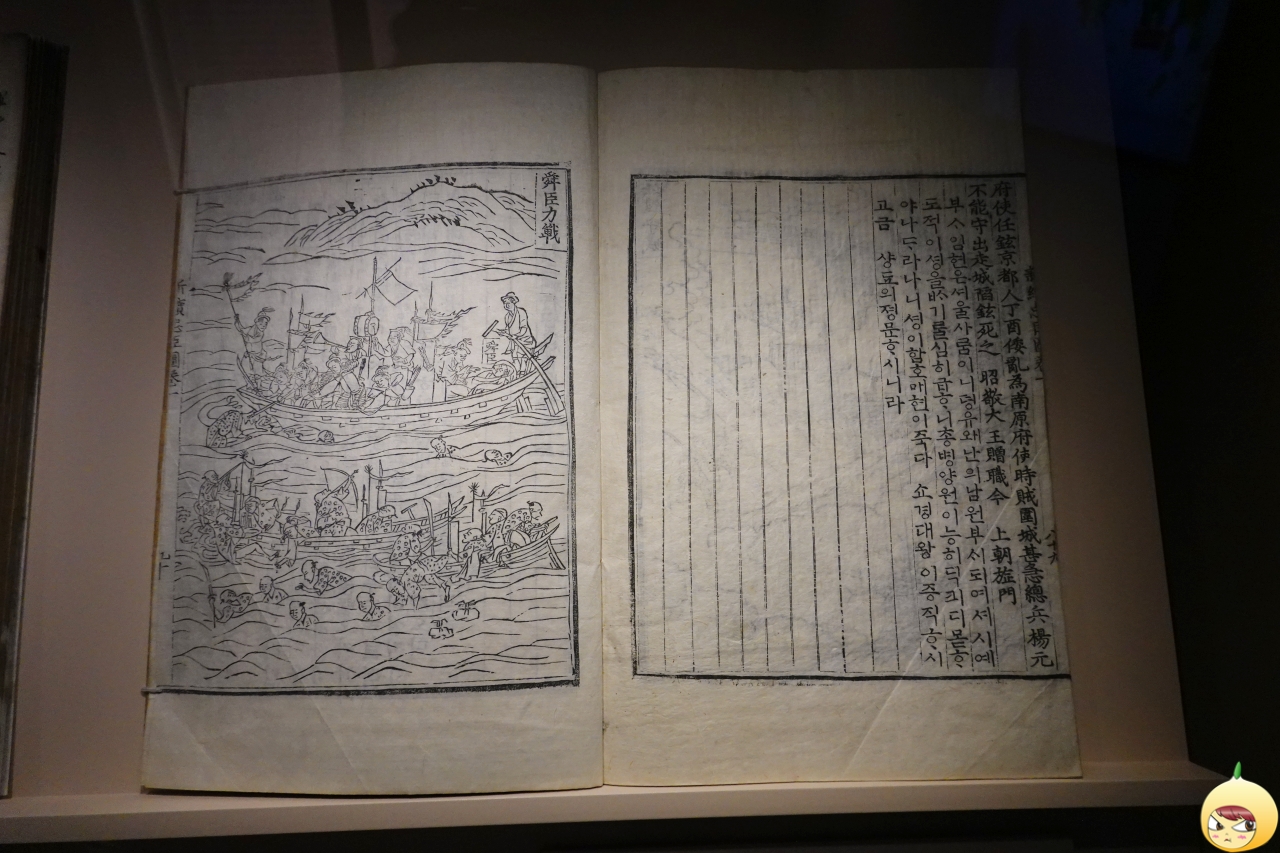 府使任鉉京都人丁酉倭亂為南原府使時賊圍城甚急總兵楊元
不能守出走城陷鉉死之 昭敬大王贈職今 上朝旌門
부ᄉᆞ임현은셔울사ᄅᆞᆷ이니뎡유왜난의남원부ᄉᆡ되여셔시예
도적이셩을ᄡᅡ기ᄅᆞᆯ심히급ᄒᆞ니총병양원이능히딕킈디몯ᄒᆞ
야나ᄃᆞ라나니셩이함ᄒᆞ매현이죽다 쇼경대왕이증직ᄒᆞ시
고금 샹됴의졍문ᄒᆞ시니라
舜臣力戰
舜臣
忠臣圖卷一
九十